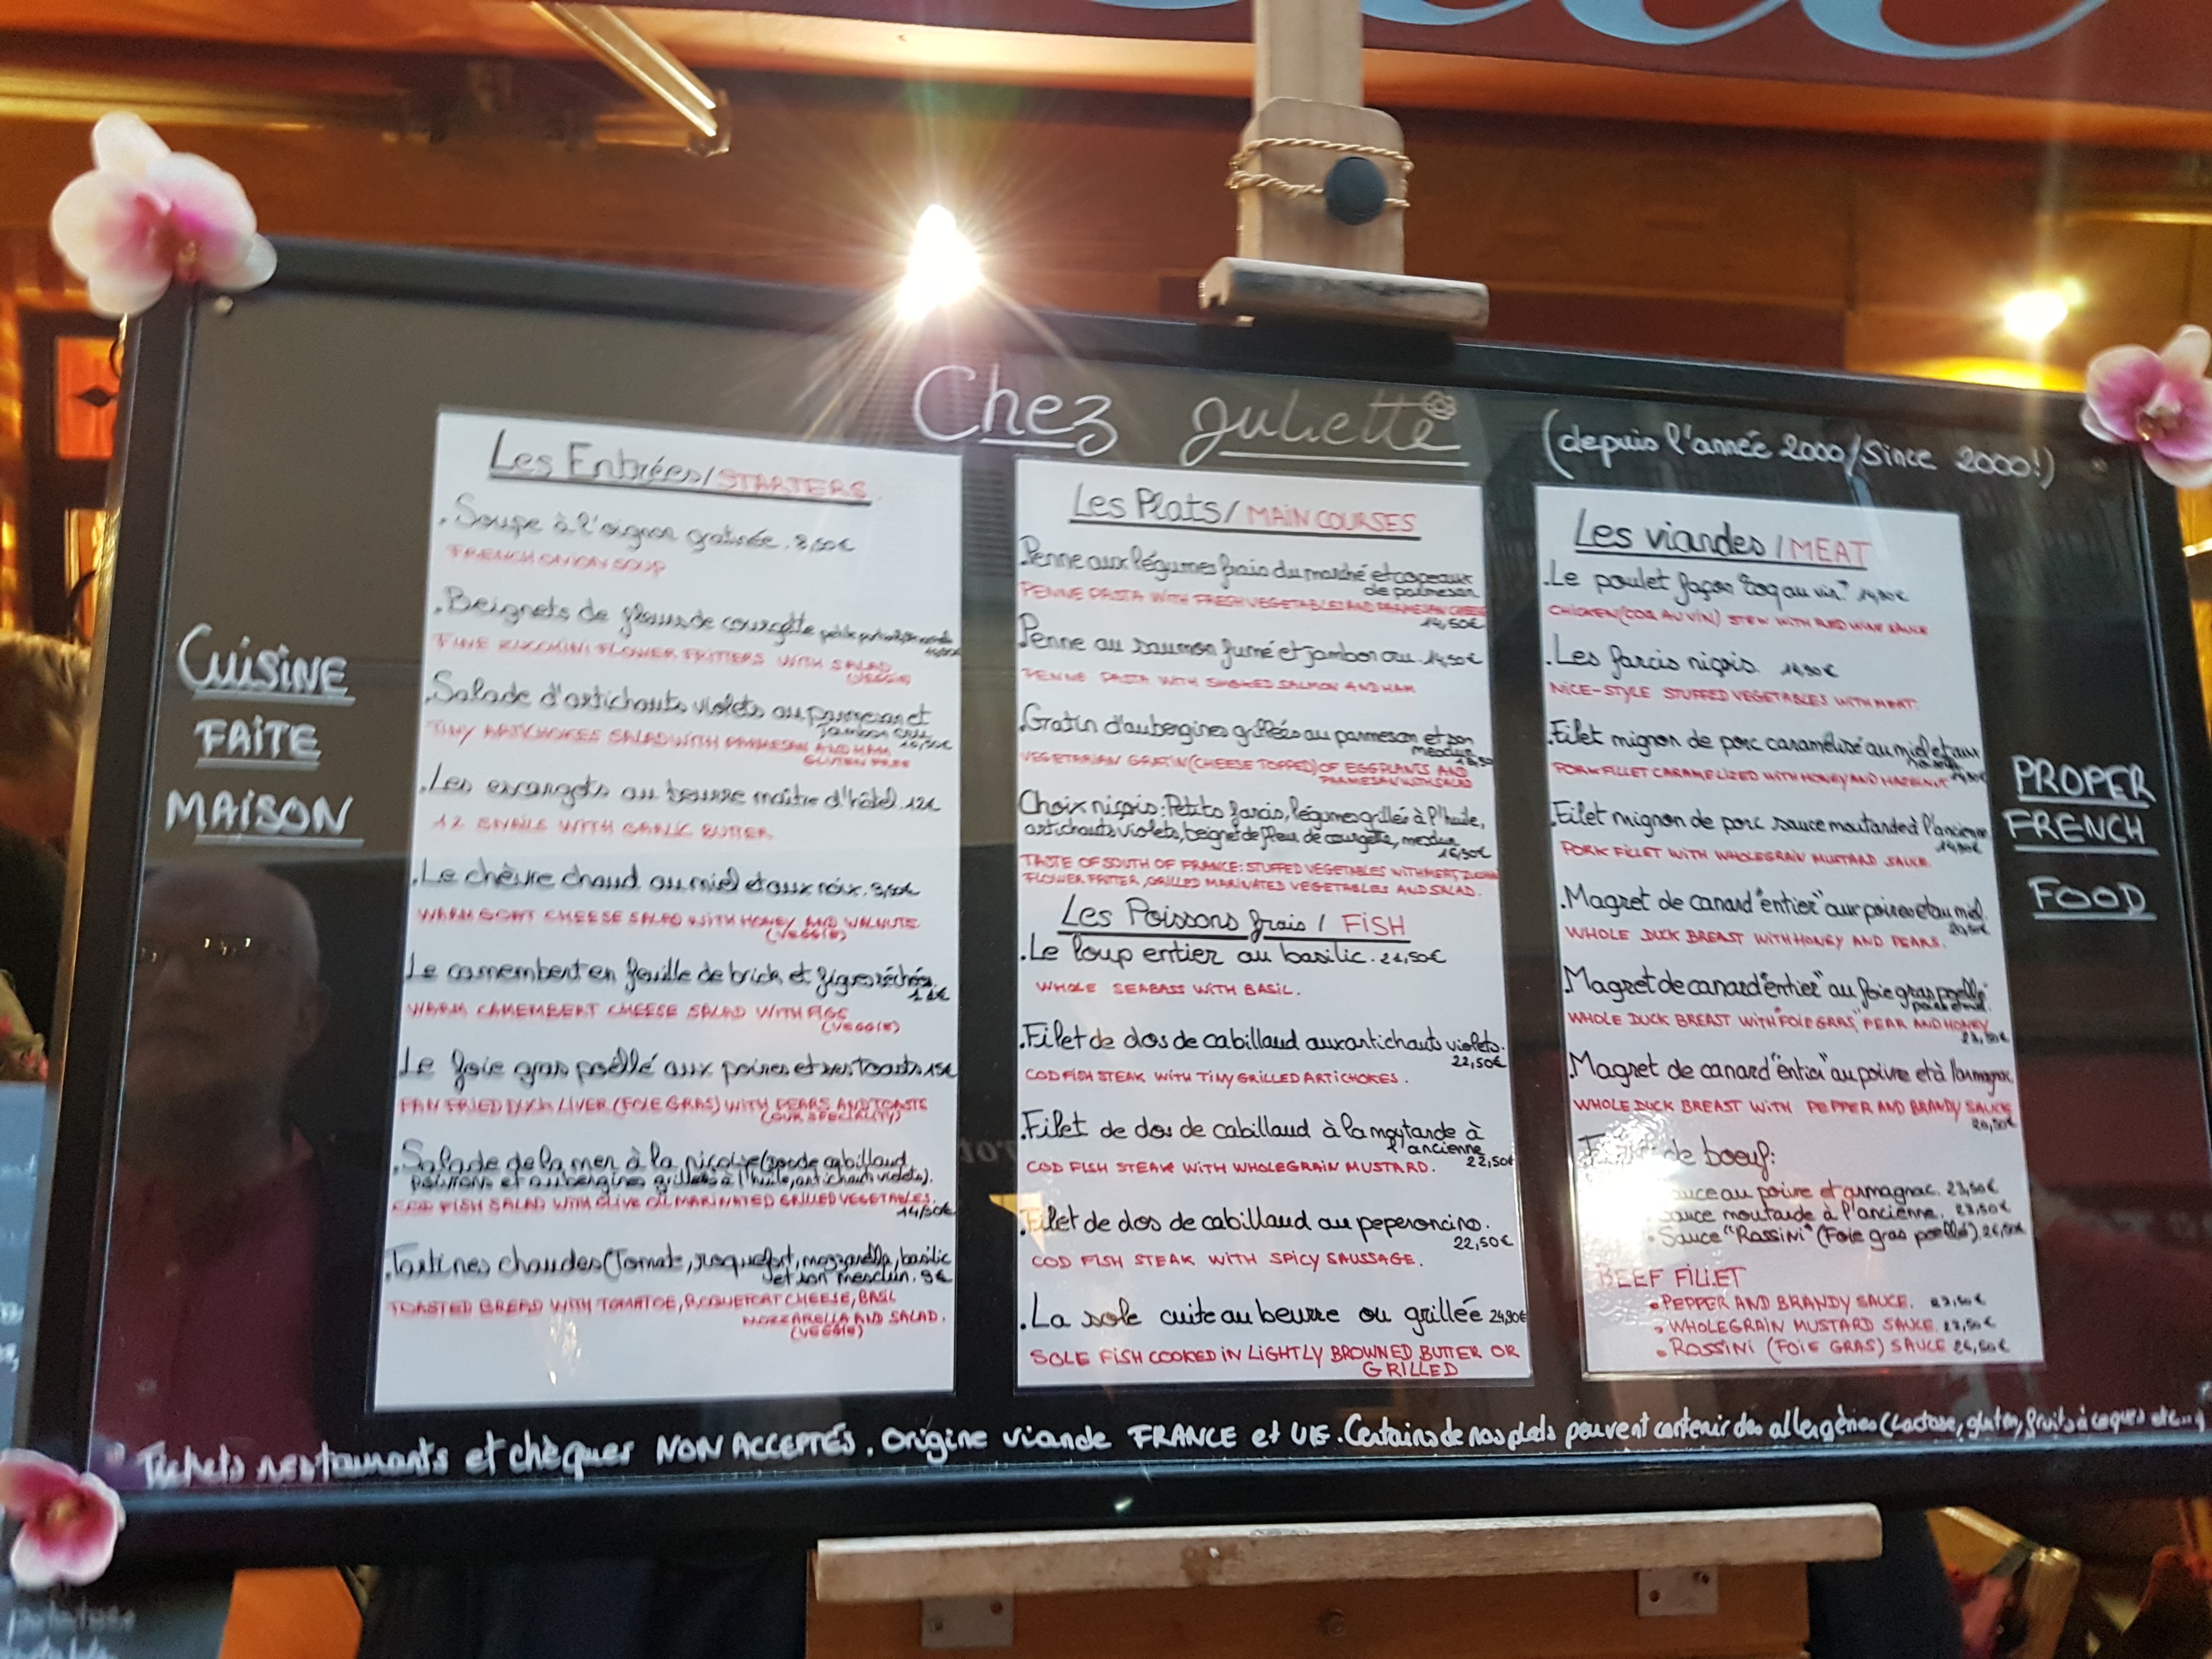 Chez Juliette
(depuis l'année 2000/Since 2000!)
CUISINE
FAITE
MAISON
Les Entrées/STARTERS
.Soupe à l'oignon gratinée. 8,50€
FRENCH ONION SOUP
.Beignets de fleurs de courgette
FINE ZUCCHINI FLOWER FRITTERS WITH SALAD
(VEGGIE)
.Salade d'artichauts violets au parmesan et
jambon cru
TINY ARTICHOKES SALAD WITH PARMESAN AND HAM
GLUTEN FREE
.Les escargots au beurre maître d'hôtel. 12€
12 SNAILS WITH GARLIC BUTTER
.Le chèvre chaud au miel et aux noix.
WARM GOAT CHEESE SALAD WITH HONEY AND WALNUTS
(VEGGIE)
Le camembert en feuille de brick et figues séchées.
WARM CAMEMBERT CHEESE SALAD WITH FIGS
(VEGGIE)
Le foie gras poêllé aux poires et ses toasts 15€
PAN FRIED DUCK LIVER (FOIE GRAS) WITH PEARS AND TOASTS
(OUR SPECIALITY)
.Salade de la mer à la niçoise cabillaud,
poivrons et aubergines grillées à l'huile, artichauts violets).
COD FISH SALAD WITH OLIVE OIL MARINATED GRILLED VEGETABLES.
14,50€
.Tartines chaudes (Tomate, roquefort, mozzarella, basilic
et son mesclun. 9€
TOASTED BREAD WITH TOMATOE, ROQUEFORT CHEESE, BASIL
MOZZARELLA AND SALAD.
(VEGGIE)
Les Plats/ MAIN COURSES
.Penne aux légumes frais du marché et copeaux
de parmesan
PENNE PASTA WITH FRESH VEGETABLES AND PARMESAN CHEESE
14,50€
.Penne au saumon fumé et jambon cru. 14,50€
PENNE PASTA WITH SMOKED SALMON AND HAM
.Gratin d'aubergines grillées au parmesan et son
mesclun
VEGETARIAN GRATIN (CHEESE TOPPED) OF EGGPLANTS AND
PARMESAN WITH SALAD
Choix niçois: Petits farcis, légumes grillés à l'huile,
artichauts violets, beignet de fleur de courgette, mesclun
16,50€
TASTE OF SOUTH OF FRANCE: STUFFED VEGETABLES WITH MEAT,
FLOWER FRITTER, GRILLED MARINATED VEGETABLES AND SALAD.
Les Poissons frais / FISH
.Le loup entier au basilic. 21,50€
WHOLE SEABASS WITH BASIL.
.Filet de dos de cabillaud aux artichauts violets.
22,50€
COD FISH STEAK WITH TINY GRILLED ARTICHOKES.
.Filet de dos de cabillaud à la moutarde à
l'ancienne
22,50€
COD FISH STEAK WITH WHOLEGRAIN MUSTARD.
.Filet de dos de cabillaud au peperoncino.
22,50€
COD FISH STEAK WITH SPICY SAUSSAGE.
.La sole cuite au beurre ou grillée 24,90€
SOLE FISH COOKED IN LIGHTLY BROWNED BUTTER OR
GRILLED
Les viandes / MEAT
.Le poulet façon "Coq au vin." 14,90€
CHICKEN (COQ AU VIN) STEW WITH RED WINE SAUCE
.Les farcis niçois. 14,90€
NICE-STYLE STUFFED VEGETABLES WITH MEAT.
.Filet mignon de porc caramélisé au miel et aux
PORK FILLET CARAMELIZED WITH HONEY AND HAZELNUT
.Filet mignon de porc sauce moutarde à l'ancienne
14,90€
PORK FILLET WITH WHOLEGRAIN MUSTARD SAUCE.
.Magret de canard "entier" aux poires et au miel.
WHOLE DUCK BREAST WITH HONEY AND PEARS.
.Magret de canard "entier" au foie gras poellé
WHOLE DUCK BREAST WITH "FOIE GRAS", PEAR AND HONEY
23,50€
.Magret de canard "entier" au poivre et à l'armagnac
WHOLE DUCK BREAST WITH PEPPER AND BRANDY SAUCE
20,50€
de boeuf:
au poivre et armagnac. 23,50€
sauce moutarde à l'ancienne. 23,50€
.Sauce "Rossini" (Foie gras poellé). 26,50€
BEEF FILLET
•PEPPER AND BRANDY SAUCE. 23,50€
•WHOLEGRAIN MUSTARD SAUCE. 23,50€
•ROSSINI (FOIE GRAS) SAUCE 26,50€
PROPER
FRENCH
FOOD
Tickets restaurants et chèques NON ACCEPTÉS. Origine viande FRANCE et UE. Certains de nos plats peuvent contenir des allergènes (Lactose, gluten, fruits à coques etc...)